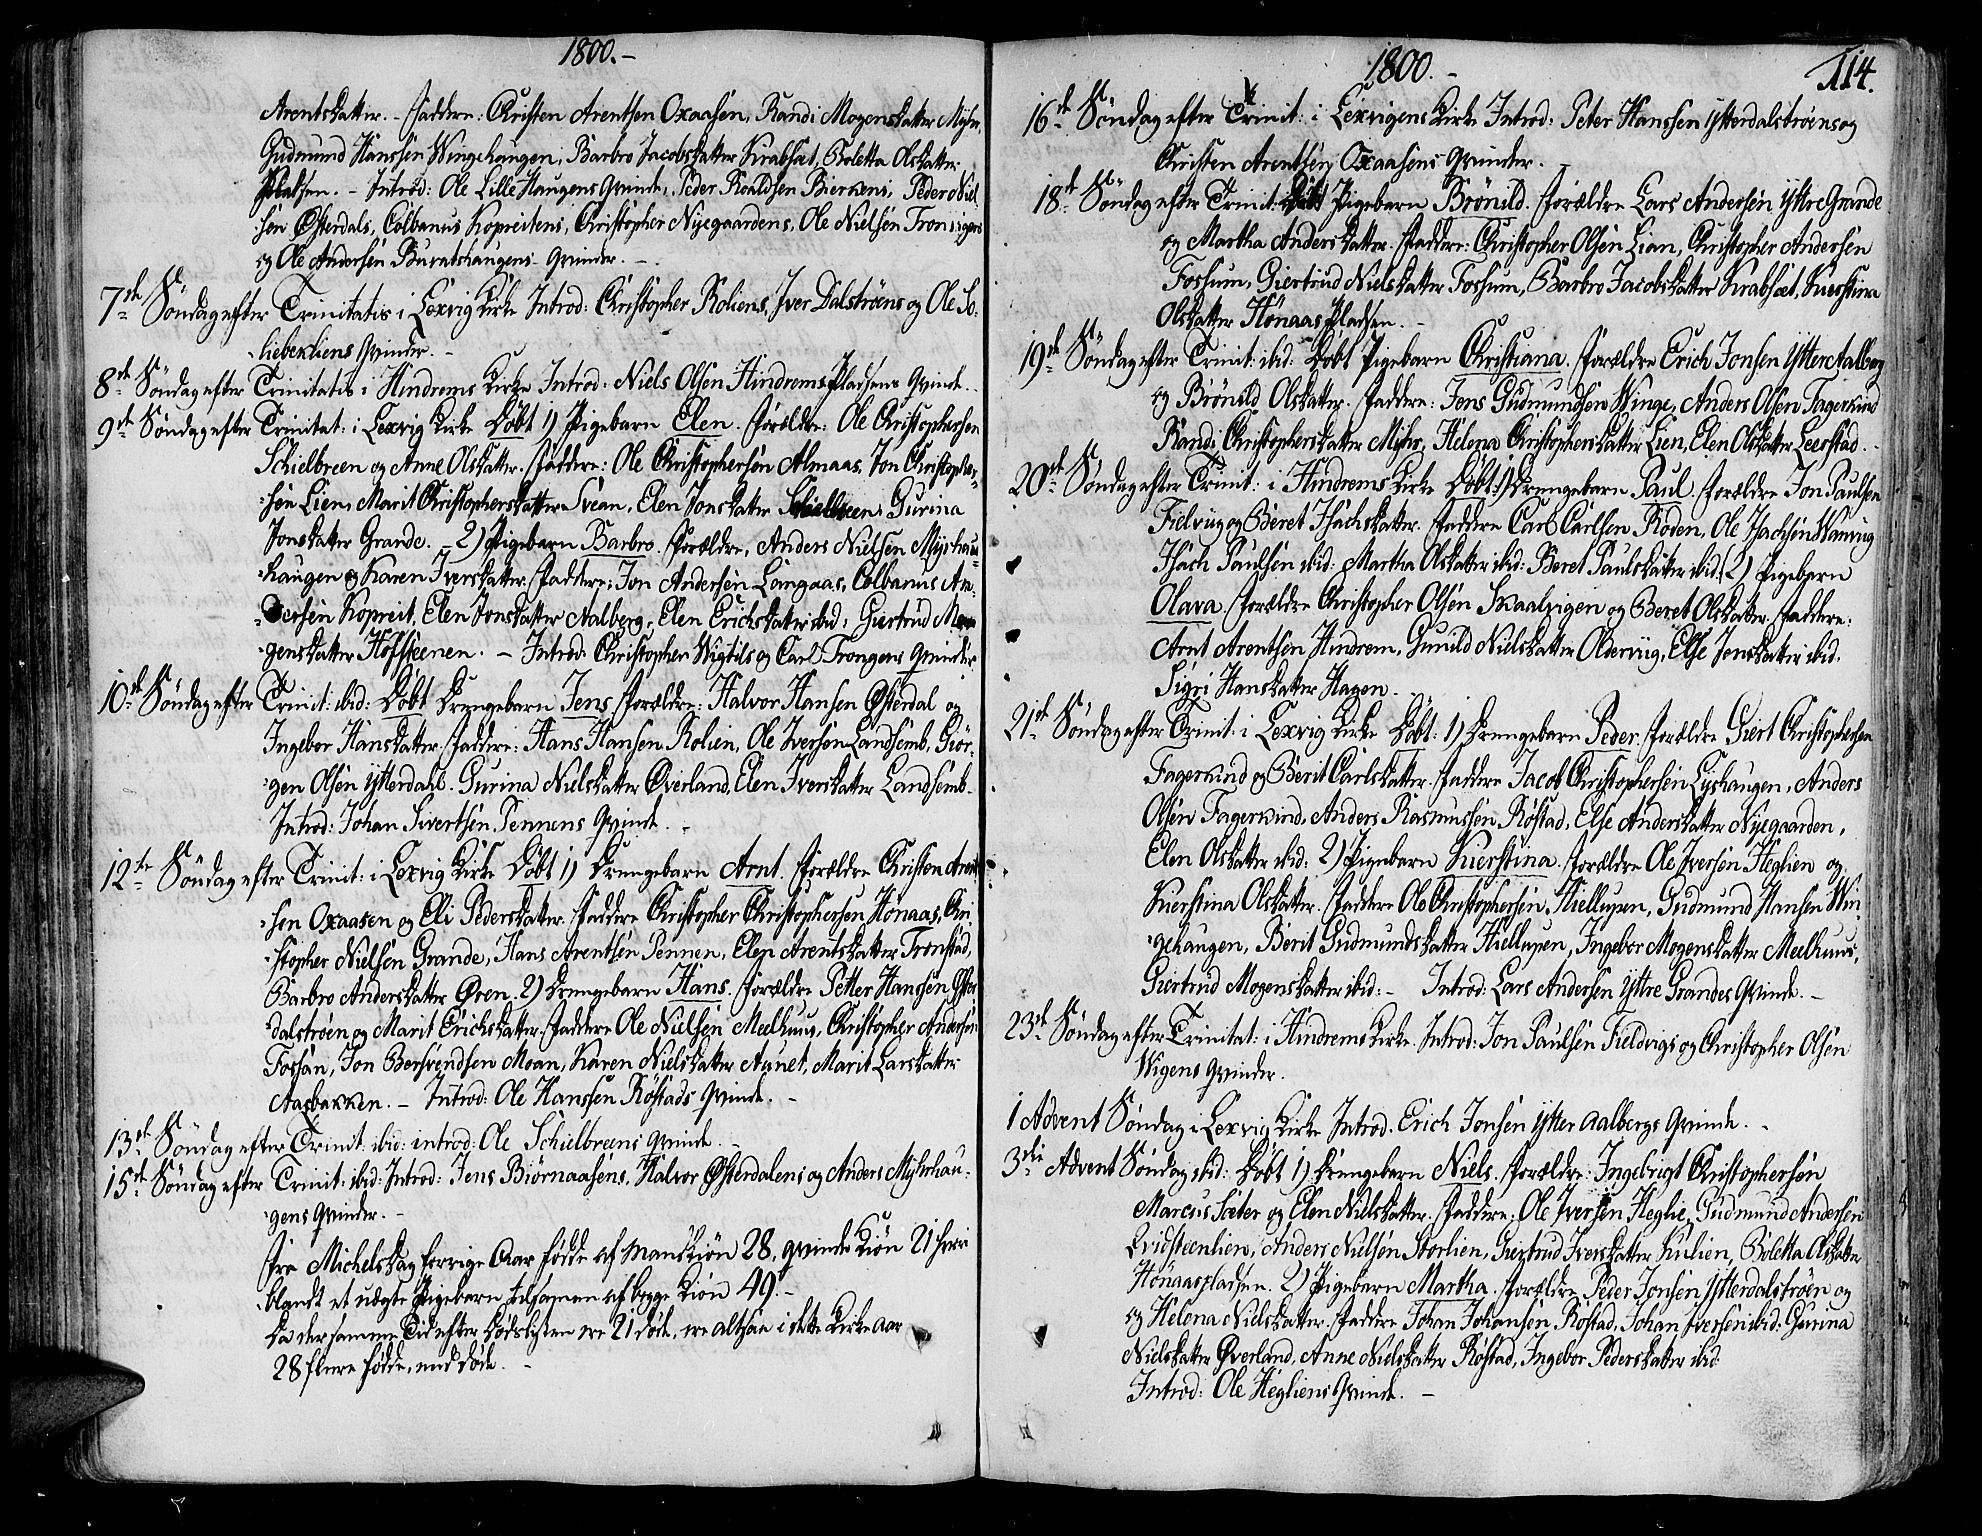 1800.-
Arentsdatter. - Faddere: Christen Arentsen Oxaasen, Randi Mogensdatter Myhr,
Gudmund Hanssen Wingehaugen, Barbro Jacobsdatter Krabsæt, Boletta Olsdatter
Pladsen. - Introd: Ole Lille Haugens Qvinde, Peder Roaldsen Bierkens, Peder Niel
sen Østerdals, Colbanus Kopreitens, Christopher Nyegaardens, Ole Nielsen Tronsigers
og Ole Andersen Buratshaugens Qvinder. -
7de Søndag efter Trinitatis i Lexvig Kirke Introd: Christopher Roliens, Iver Dalstrøens og Ole So-
liebekliens Qvinder. -
8de Søndag efter Trinitatis i Hindrems Kirke Introd: Niels Olsen Hindrems Pladsens Qvinde.
9de Søndag efter Trinitat: i Lexvig Kirke Døbt 1) Pigebarn Elen. Forældre: Ole Christophersen
Schielbreen og Anne Olsdatter. Faddere: Ole Christophersen Almaas, Jon Christopher-
sen Lien, Marit Christophersdatter Svean, Elen Jonsdatter Schielbreen, Gurina
Jonsdatter Grande. - 2) Pigebarn Barbro. Forældre, Anders Nielsen Myrhau-
haugen og Karen Iversdatter. Faddere: Jon Andersen Langaas, Colbanus An-
dersen Kopreit, Elen Jonsdatter Aalberg, Elen Erichsdatter ibid: Giertrud Mo-
gensdatter Hofsteenen. - Introd: Christopher Wigtils og Carl Trongens Qvinder.
10de Søndag efter Trinit: ibid: Døbt Drengebarn Jens Forældre: Halvor Hansen Østerdal og
Ingebor Hansdatter. Faddere: Hans Hansen Rolien, Ole Iversen Landsemb, Giør-
gen Olsen Ytterdahl. Gurina Nielsdatter Øverland, Elen Iversdatter Landsemb.
Introd: Johan Sivertsen Pennens Qvinde. -
12te Søndag efter Trinit: i Lexvig Kirke Døbt 1) Drengebarn Arnt. Forældre Christen Arent
sen Oxaasen og Eli Pedersdatter. Faddere Christopher Christophersen Hønaas, Chri
stopher Nielsen Grande, Hans Arentsen Pennen, Elen Arentsdatter Tronstad,
Barbro Andersdatter Øren. 2) Drengebarn Hans. Forældre Petter Hanssen Ytter
dalstrøen og Marit Erichsdatter. Faddere Ole Nielsen Meelhuus, Christopher Andersen
Fossan, Jon Bersvendsen Moan, Karen Nielsdatter Aunet, Marit Larsdatter
Aasbakken. - Introd: Ole Hanssen Røstads Qvinde. -
13de Søndag efter Trinit: ibid: introd: Ole Schielbreens Qvinde. -
15de Søndag efter Trinit: ibid: Introd: Jens Biørnaasens, Halvor Østerdalens og Anders Myhrhau-
gens Qvinder. -
Fra Michelsdag forrige Aar fødde af Mandkiøn 28, qvinde Kiøn 21 hvor
blandt et uægte Pigebarn, tilsamen af begge Kiøn 49. -
Da der samme Tid efter Dødslisten ere 21 døde, ere altsaa i dette Kirke aar
28 flere fødde, end døde. -
1800. -
114.
16de Søndag efter Trinit: i Lexvigens Kirke Introd: Peter Hanssen Ytterdalstrøens og
Christen Arentsen Oxaasens Qvinder.
18de Søndag efter Trinit: Døbt Pigebarn Brønild. Forældre Lars Andersen Yttre Grande
og Martha Andersdatter. Faddere: Christopher Olsen Lian, Christopher Andersen
Fossum, Giertrud Nielsdatter Fossum, Barbro Jacobsdatter Krabsæt, Kierstina
Olsdatter Hønaas Pladsen. -
19de Søndag efter Trinit: ibid: Døbt Pigebarn Christiana. Forældre Erich Jonsen Ytter Aalberg
og Brønild Olsdatter. Faddere: Jens Gudmundsen Winge, Anders Olsen Fagervind
Randi Christophersdatter Myhr, Helena Christophersdatter Lien, Elen Olsdatter Leerstad. -
20de Søndag efter Trinit: i Hindrems Kirke Døbt: 1) Drengebarn Paul. Forældre Jon Paulsen
Fielvig og Beret Isachsdatter. Faddere Carl Carlsen Røden, Ole Isachsen Wanvig
Isach Paulsen ibid: Martha Olsdatter ibid: Beret Paulsdatter ibid: 2) Pigebarn
Olava. Forældre Christopher Olsen Skaalvigen og Beret Olsdatter. Faddere:
Arnt Arentsen Hindrem, Gunild Nielsdatter Oldervig, Else Jensdatter ibid.
Sigri Hansdatter Hagen. -
21de Søndag efter Trinit: i Lexvig Kirke Døbt: 1) Drengebarn Peder. Forældre Giert Christophersen
Fagervind og Berit Carlsdatter. Faddere Jacob Christophersen Lyshaugen, Anders
Olsen Fagervind, Anders Rasmussen Røstad, Else Andersdatter Nyegaarden,
Elen Olsdatter ibid: 2) Pigebarn Kierstina. Forældre Ole Iversen Heglien og
Kierstina Olsdatter. Faddere Ole Christophersen Hiellupen, Gudmund Hansen Win-
gehaugen, Berit Gudmundsdatter Hiellupen, Ingebor Mogensdatter Meelhuus,
Giertrud Mogensdatter ibid: - Introd: Lars Andersen Yttre Grandes Qvinde. -
23de Søndag efter Trinitat: i Hindrems Kirke. Introd: Jon Paulsen Fieldvigs og Christopher Olsen
Wigens Qvinder.
1 Advent Søndag i Lexvig Kirke Introd: Erich Jonsen Ytter Aalbergs Qvinde. -
3die Advent Søndag ibid: Døbt 1) Drengebarn Niels. Forældre: Ingebrigt Christophersen
Marcus Sæter og Elen Nielsdatter. Faddere: Ole Iversen Heglie, Gudmund Andersen
Qvidsteenlien, Anders Nielsen Storlien, Giertrud Iversdatter Kulien, Boletta Olsdatter
Hønaaspladsen. 2) Pigebarn Martha. Forældre Peter Jonsen Ytterdalstrøen og
og Helena Nielsdatter. Faddere Johan Johansen Røstad, Johan Iversen ibid: Gurina
Nielsdatter Øverland, Anne Nielsdatter Røstad, Ingebor Pedersdatter ibid:
Introd: Ole Hegliens Qvinde. -